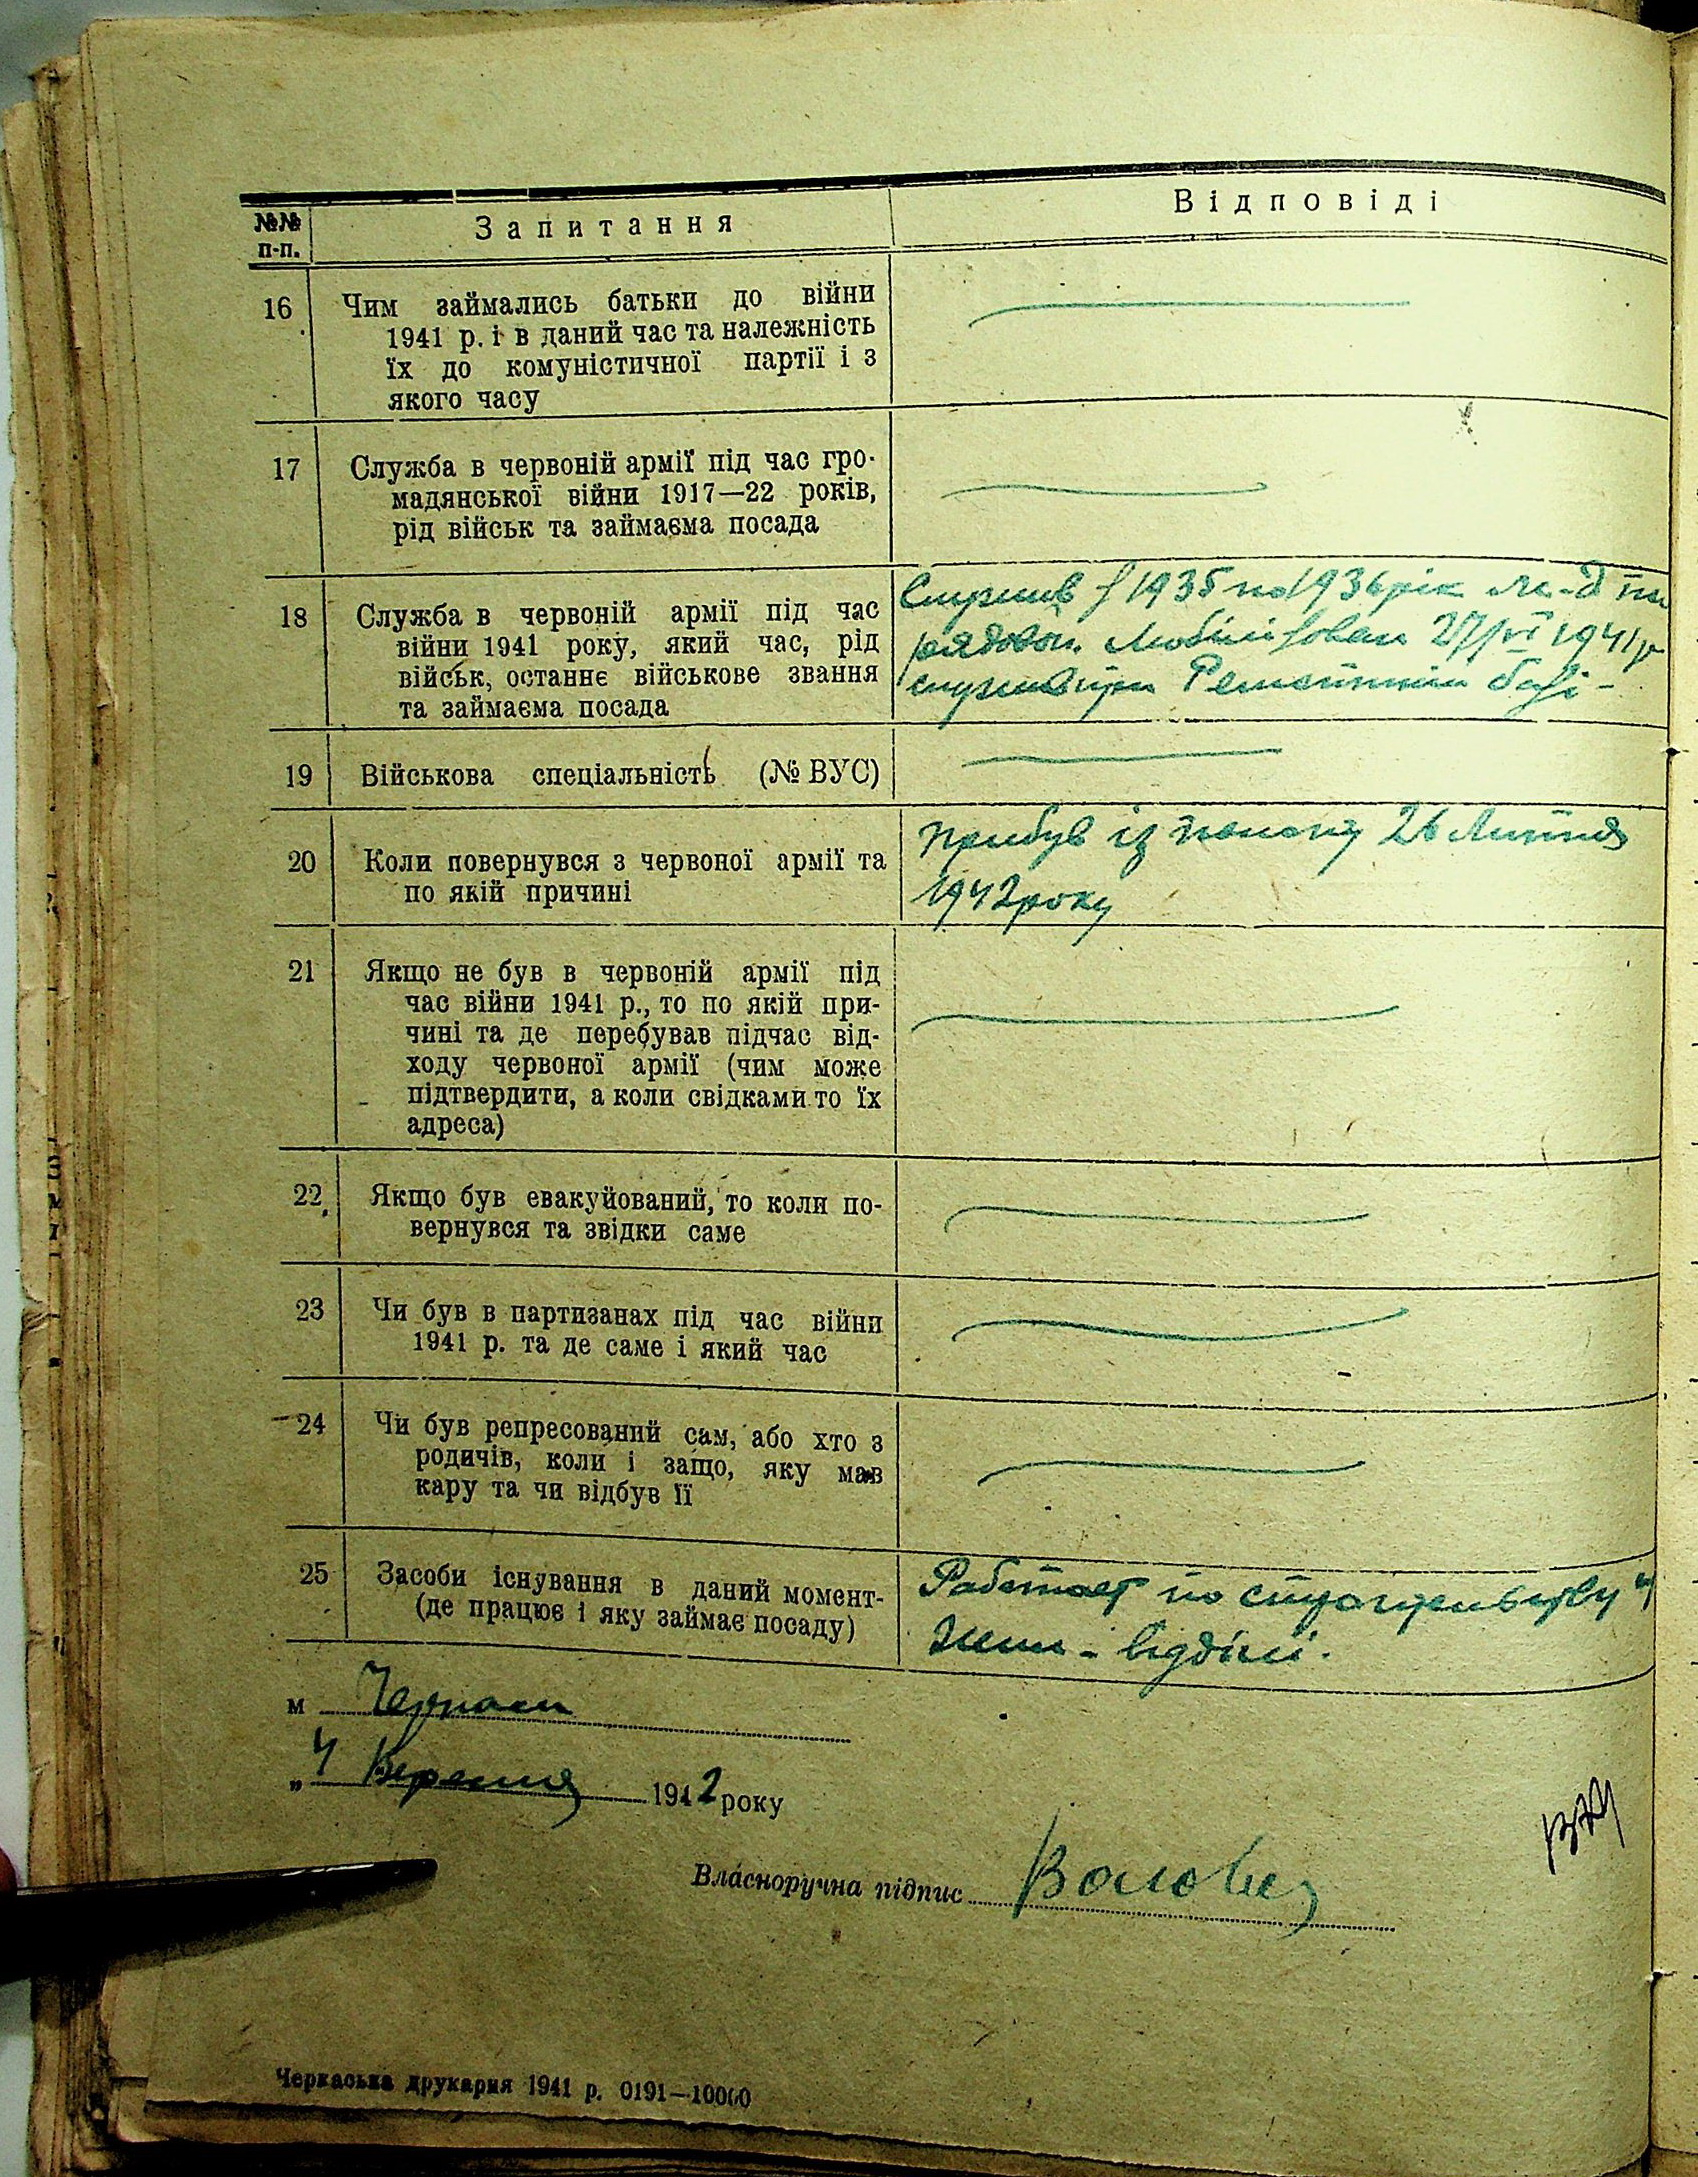 №№ п-п.
Запитання
Відповіді
16
Чим займались батьки до війни
1941 р. і в даний час та належність
їх до комуністичної партії і з
якого часу
17
Служба в червоній армії під час гро-
мадянської війни 1917—22 років,
рід військ та займаєма посада
18
Служба в червоній армії під час
війни 1941 року, який час, рід
військ, останнє військове звання
та займаєма посада
Служив з 1935 по 1936 рік
рядовой. Мобілізован 27/VI 1941 р
служив при Ремонтній базі-
19
Військова спеціальність (№ ВУС)
20
Коли повернувся з червоної армії та
по якій причині
Прибув із полону 26 Липня
1942 року
21
Якщо не був в червоній армії під
час війни 1941 р., то по якій при-
чині та де перебував підчас від-
ходу червоної армії (чим може
підтвердити, а коли свідками то їх
адреса)
22
Якщо був евакуйований, то коли по-
вернувся та звідки саме
23
Чи був в партизанах під час війни
1941 р. та де саме і який час
24
Чи був репресований сам, або хто з
родичів, коли і защо, яку мав
кару та чи відбув її
25
Засоби існування в даний момент-
(де працює і яку займає посаду)
Работает по
відділі.
м Черкаси
„4 Вересня 1942 року
Власноручна підпис
Черкаська друкарня 1941 р. 0191—10000